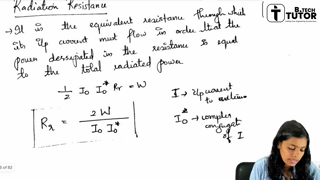 Radiation Resistance
B.TECH
TUTOR
→ It is the equivalent resistance through which
its i/p current must flow in order that the
power dessipated in the resistance is equal
to the total radiated power
1/2 I₀ I₀* Rr = W
Rr = 2W / I₀ I₀*
I → i/p current
to
I₀* → complex
conjugat
of I